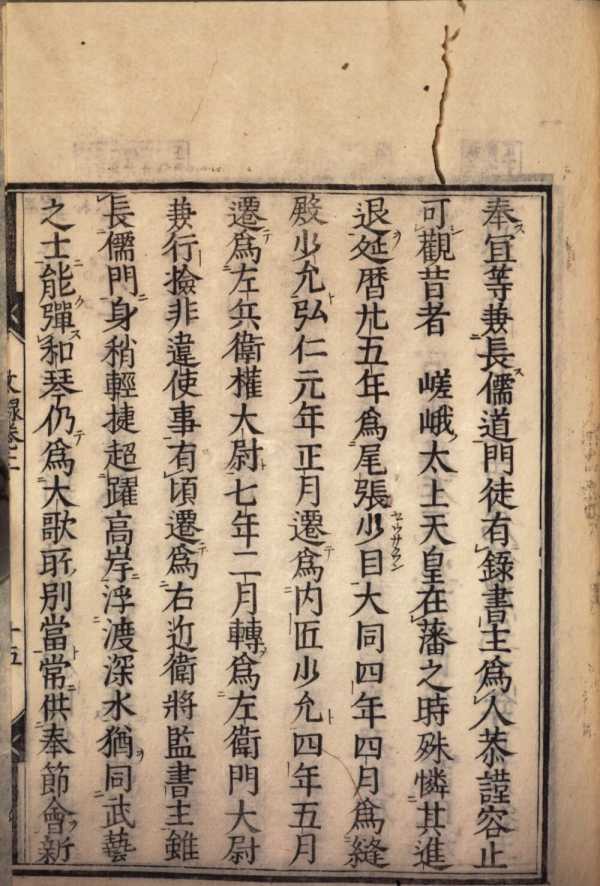 奉冝等兼長儒道門徒有錄書主爲人恭謹容止
可觀昔者　嵯峨太上天皇在藩之時殊憐其進
退延暦廿五年爲尾張少目大同四年四月爲縫
殿少允弘仁元年正月遷爲内匠少允四年五月
遷爲左兵衛權大尉七年二月轉爲左衛門大尉
兼行撿非違使事有頃遷爲右近衛將監書主雖
長儒門身稍輕捷超躍高岸浮渡深水猶同武藝
之士能彈和琴仍爲大歌所別當常供奉節會新
文録卷二
十五